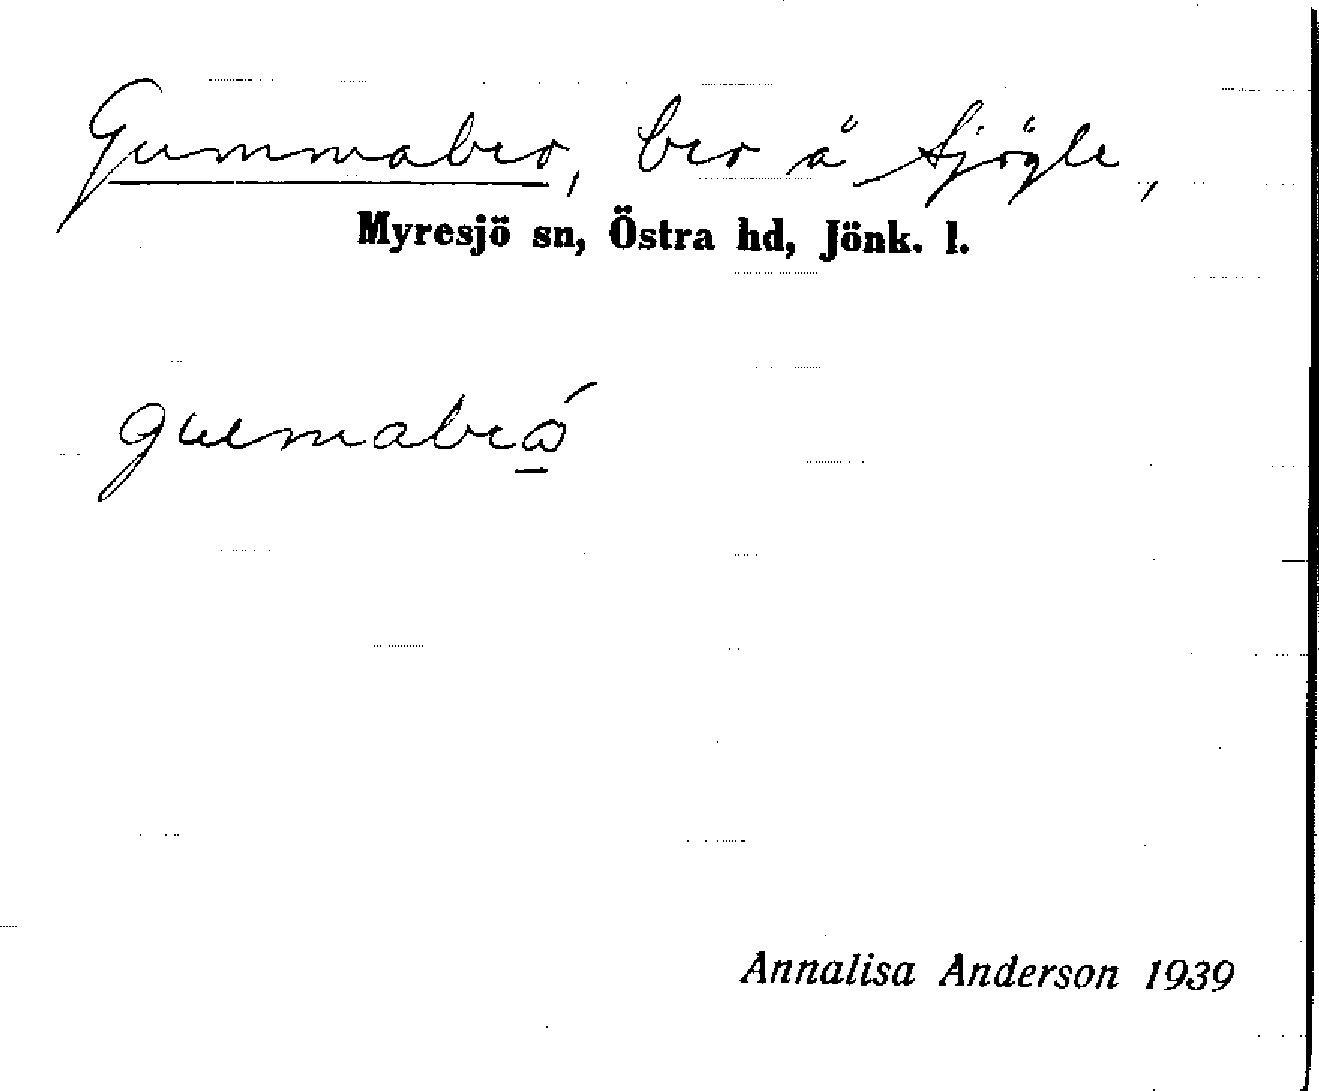 Gummabro, bro å Sjögle,
Myresjö sn, Östra hd, Jönk. l.
Annalisa Anderson 1939